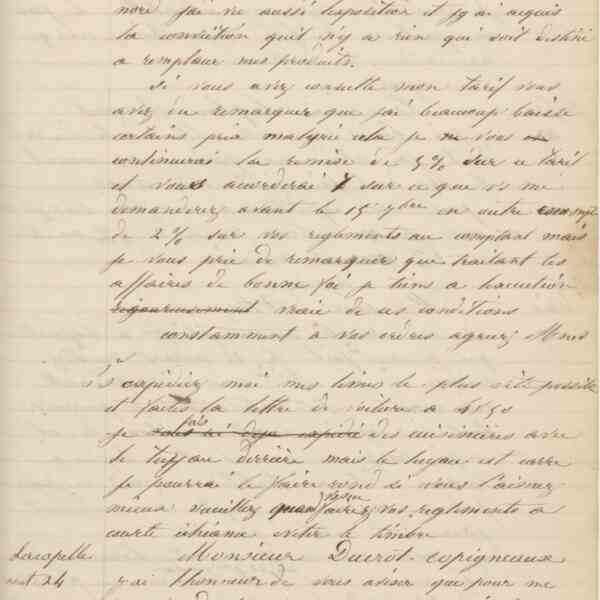 nord j'ai vu aussi l'exposition et j'y ai acquis
la conviction qu'il n'y a rien qui soit destiné
a remplacer mes produits.
si vous avez consulté mon tarif vous
avez du remarquer que j'ai beaucoup baissé
certains prix malgré cela je ne vous en
continuerai la remise de 5% sur ce tarif
et vous accorderai 7 sur ce que vs me
demanderez avant le 15 7bre en outre escompte
de 2% sur vos reglements au comptant mais
je vous prie de remarquer que traitant les
affaires de bonne foi je tiens a l'execution
rigoureusement vraie de ces conditions
constamment à vos ordres agreez Mrs
expediez moi mes limes le plus vite possible
et faites la lettre de voiture a 4f50
je fais vous ai deja expedié des cuisinières avec
le tuyau derrière mais le tuyau est carre
je pourrai le faire rond si vous l'aimez
mieux veuillez quand faire vos reglements a
courte échéance eviter le timbre
Lacapelle
Monsieur Ducrot-copigneaux
aout 24
j'ai l'honneur de vous aviser que pour me